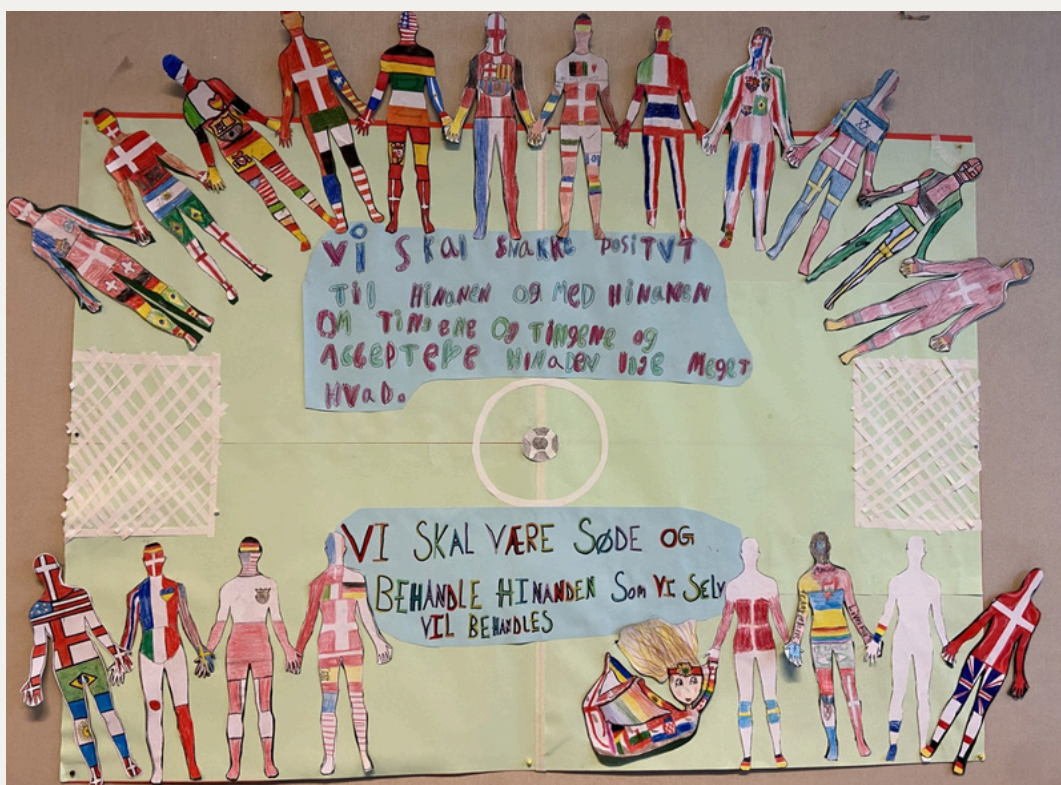 Vi SKAl SNAKKE POSiTVT
Til HINANEN Og MED HINANEN
OM TiNgENE Og TiNgENE og
ACCEPTERE HINADEN liGE MEGET
HVAD.
VI SKAL VÆRE SØDE OG
BEHANDLE HINANDEN Som VI SELV
VIL BEHANDLES